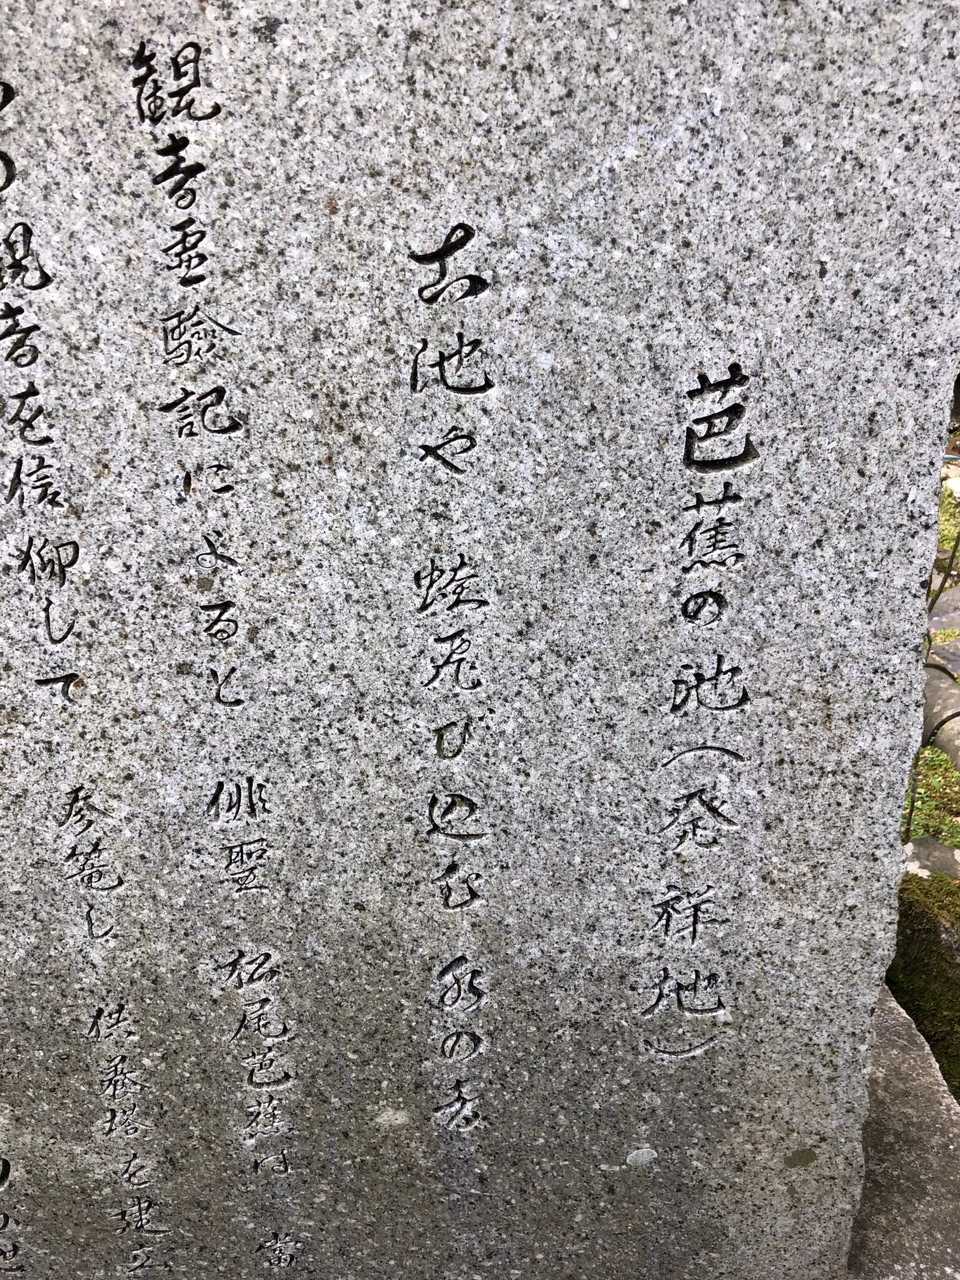 芭蕉の池(発祥地)
古池や 蛙飛び込む 水の音
観音霊験記によると 俳聖 松尾芭蕉は 當
観音を信仰して 参篭し 供養塔を建立